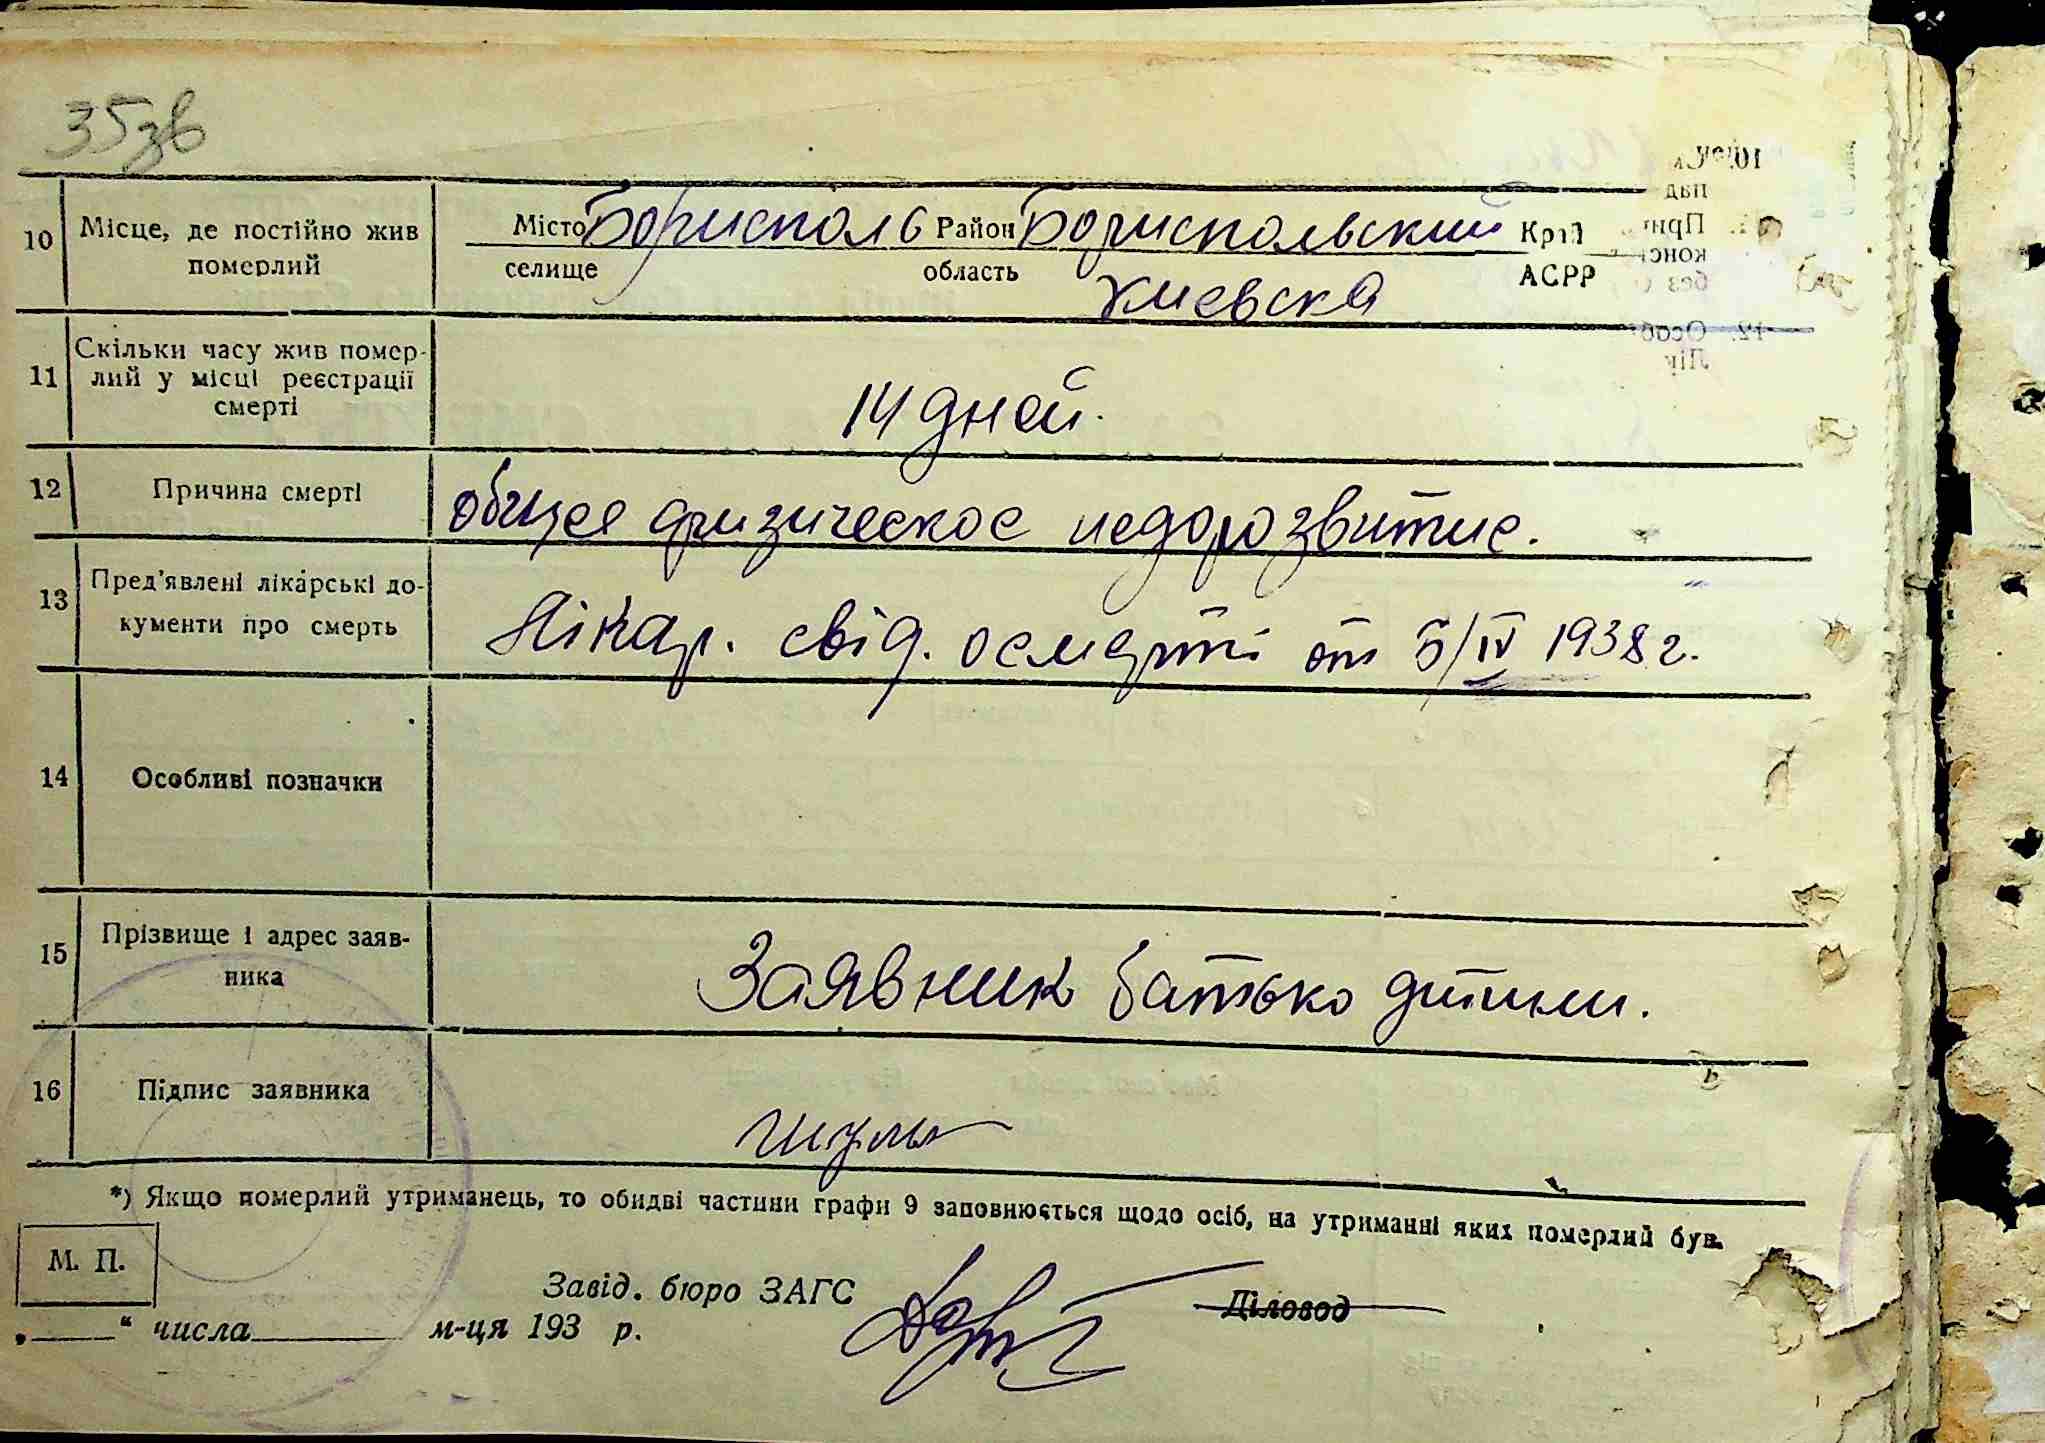 35зв
10 Місце, де постійно жив
померлий
Місто Борисполь Район Бориспольский Край
селище область Киевска АСРР
11 Скільки часу жив помер-
лий у місці реєстрації
смерті
14 дней.
12 Причина смерті
общея физическое недорозвитие.
13 Пред'явлені лікарські до-
кументи про смерть
Лікар. свід. о смерті от 5/IV 1938 г.
14 Особливі позначки
15 Прізвище і адрес заяв-
ника
Заявник батько дитини.
16 Підпис заявника
*) Якщо померлий утриманець, то обидві частини графи 9 заповнюється щодо осіб, на утриманні яких померлий був.
М. П.
Завід. бюро ЗАГС Діловод
„ “ числа м-ця 193 р.